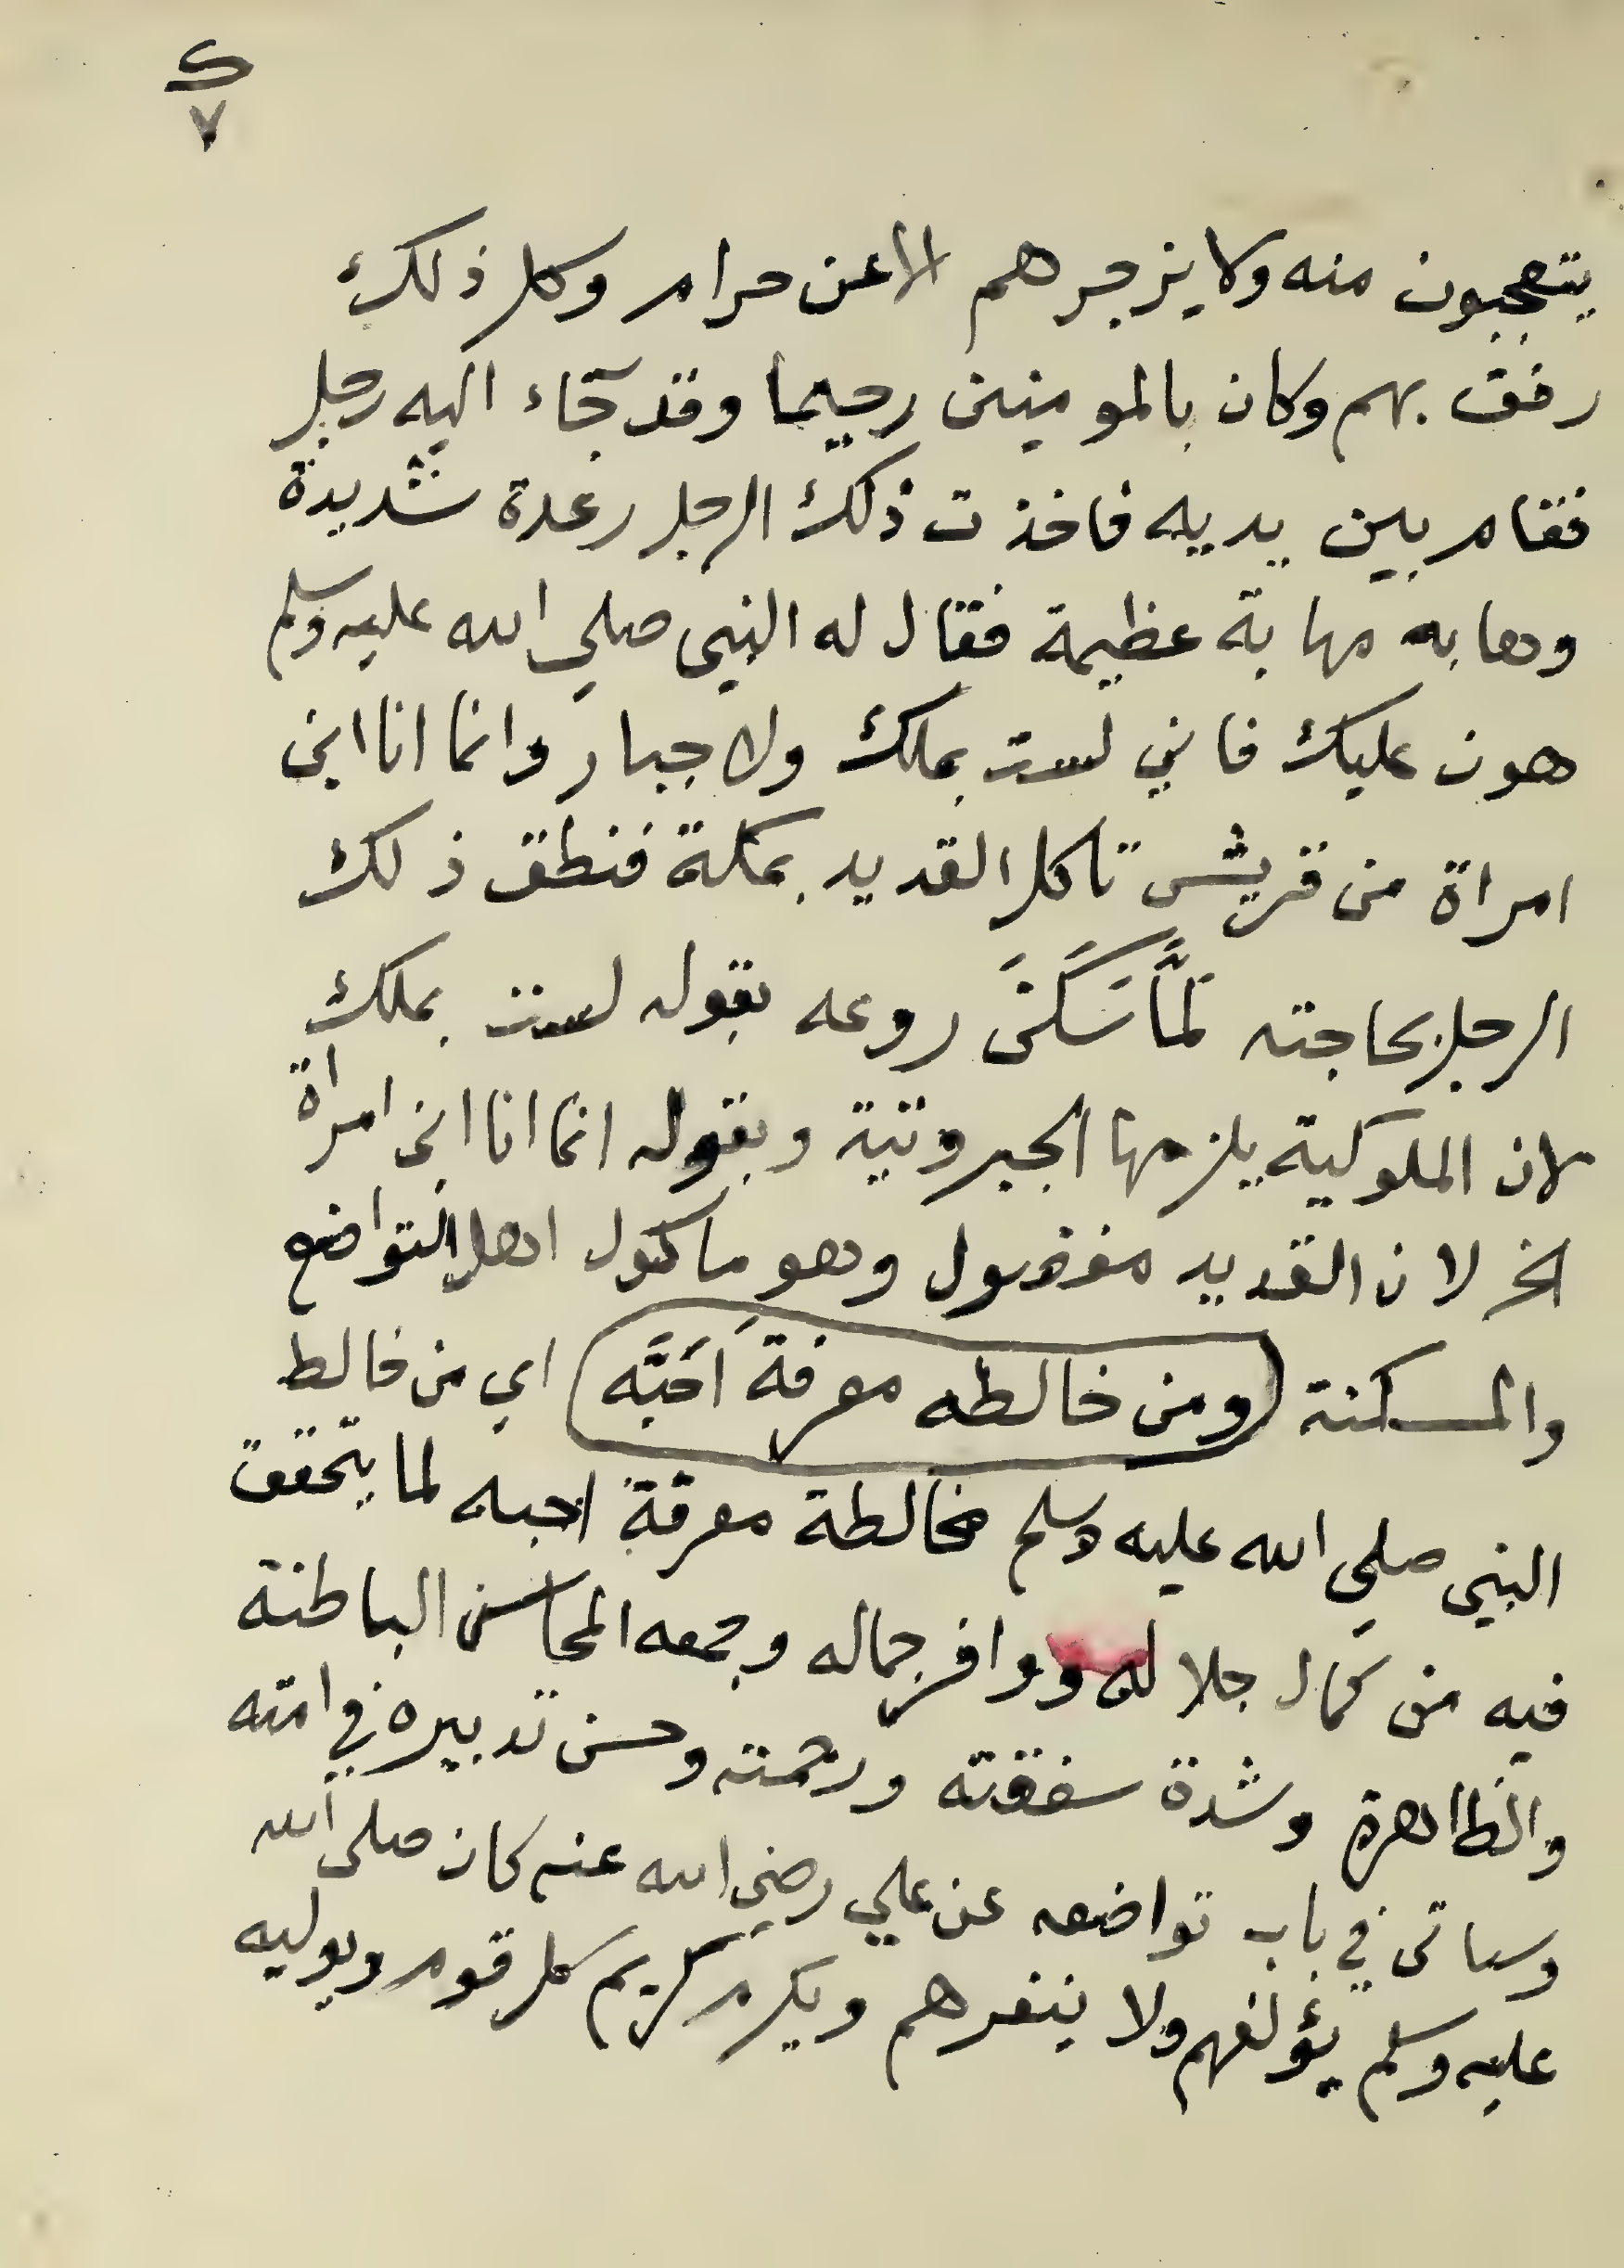 ك
٧
يتعجبون منه ولا يزجرهم الا عن حرام وكل ذلك
رفق بهم وكان بالمومنين رحيما وقد جاء اليه رجل
فقام بين يديه فاخذت ذلك الرجل رعدة شديدة
وهابه مهابة عظيمة فقال له النبي صلي الله عليه وسلم
هون عليك فاني لست بملك ولا جبار وانما انا ابن
امراة من قريش تاكل القديد بمكة فنطق ذلك
الرجل بحاجته لَمَّا سَكَنَ روعه بقوله لست بملك
لان الملوكية يلزمها الجبروتية وبقوله انما انا ابن امراة
الخ لان القديد مفضول وهو ماكول اهل التواضع
والمسكنة (ومن خالطه معرفة اَحَبَّه) اي من خالط
النبي صلي الله عليه وسلم مخالطة معرفة احبه لما يتحقق
فيه من كمال جلاله ووافر جماله وجمعه المحاسن الباطنة
والظاهرة وشدة سفقته ورحمته وحسن تدبيره في امته
وسياتى في باب تواضعه عن علي رضي الله عنه كان صلى الله
عليه وسلم يؤلفهم ولا ينفرهم ويكرم كريم كل قوم ويوليه